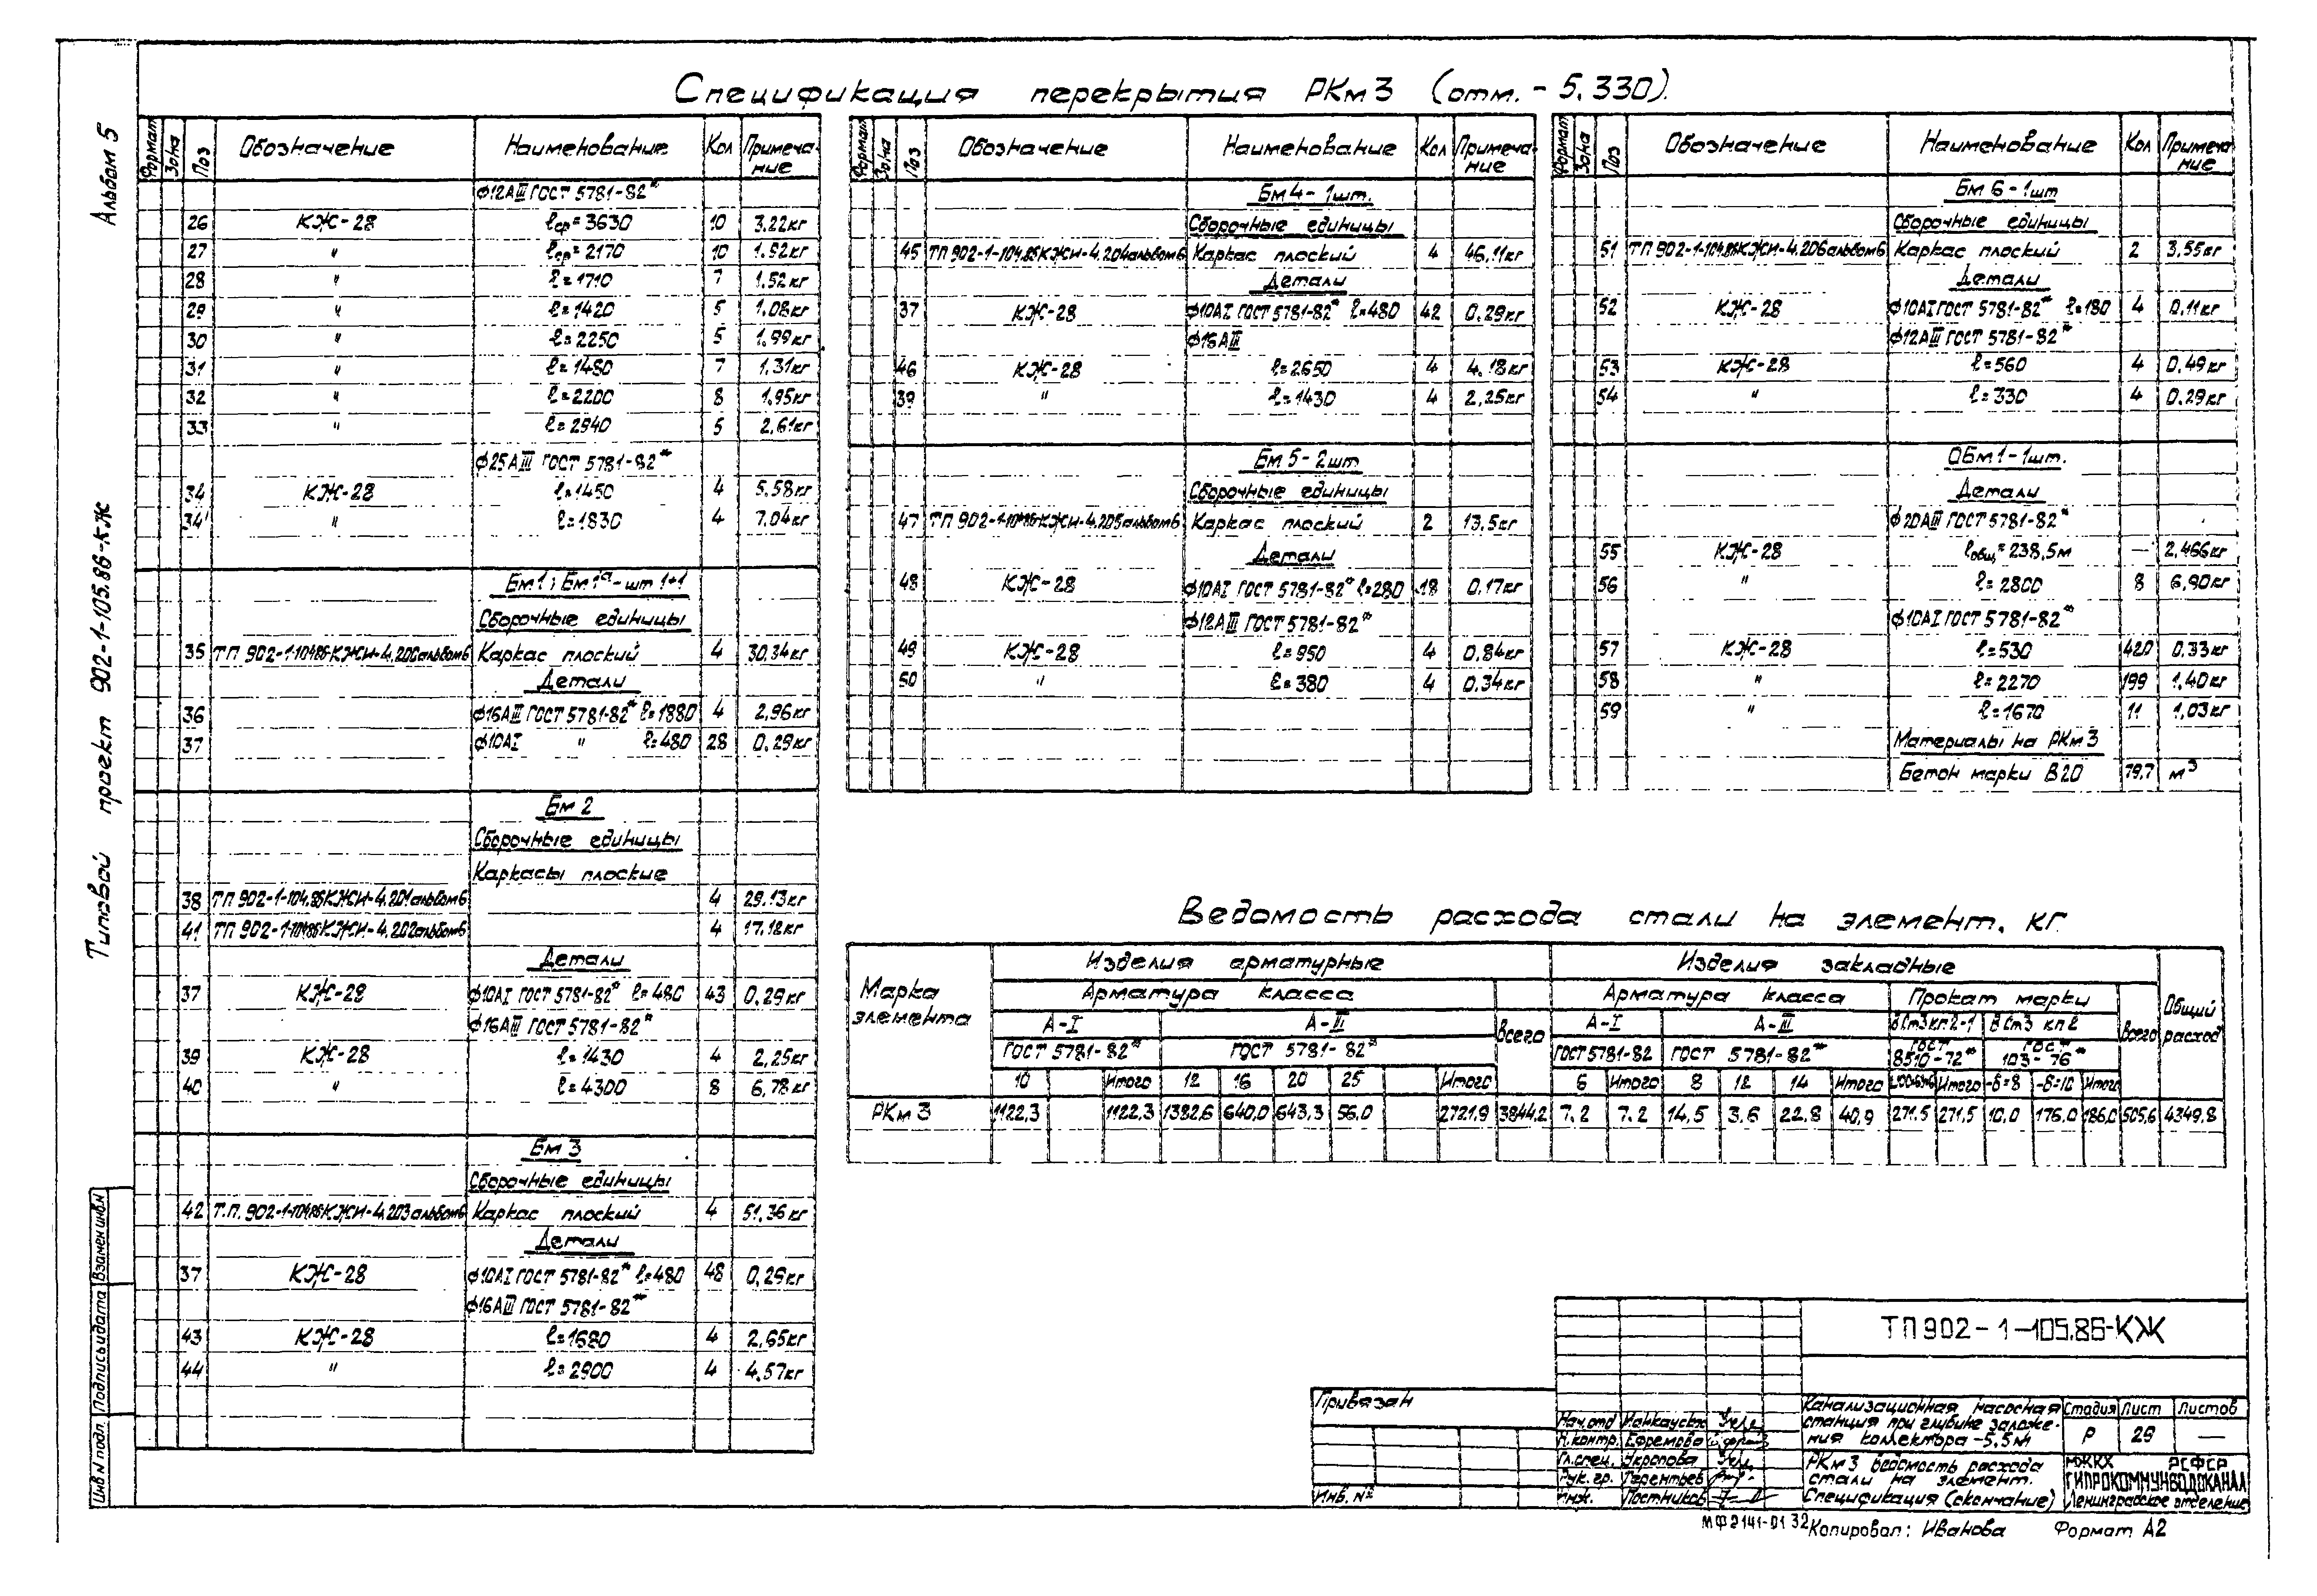 Спецификация перекрытия РКм3 (отм. - 5.330).
Альбом 5
Типовой проект 902-1-105.86-КЖ
Формат Зона Поз Обозначение Наименование Кол Примеча-ние
ф12АIII ГОСТ 5781-82*
26 КЖ-28 ℓср=3630 10 3.22кг
27 " ℓср=2170 10 1.92кг
28 " ℓ=1710 7 1.52кг
29 " ℓ=1420 5 1.08кг
30 " ℓ=2250 5 1.99кг
31 " ℓ=1480 7 1.31кг
32 " ℓ=2200 8 1.95кг
33 " ℓ=2940 5 2.61кг
ф25АIII ГОСТ 5781-82*
34 КЖ-28 ℓ=1450 4 5.58кг
34' " ℓ=1830 4 7.04кг
Бм1; Бм1а - шт 1+1
Сборочные единицы
35 ТП 902-1-104.86КЖИ-4.200альбом6 Каркас плоский 4 30.34кг
Детали
36 ф16АIII ГОСТ 5781-82* ℓ=1880 4 2,96кг
37 ф10АI " ℓ=480 28 0.29кг
Бм 2
Сборочные единицы
Каркасы плоские
38 ТП 902-1-104.86КЖИ-4.201альбом6 4 29.13кг
41 ТП 902-1-104.86КЖИ-4.202альбом6 4 17.12кг
Детали
37 КЖ-28 ф10АI ГОСТ 5781-82* ℓ=480 43 0,29кг
ф16АIII ГОСТ 5781-82*
39 КЖ-28 ℓ=1430 4 2,25кг
40 " ℓ=4300 8 6,78кг
Бм 3
Сборочные единицы
42 Т.П. 902-1-104.86КЖИ-4.203альбом6 Каркас плоский 4 51,36кг
Детали
37 КЖ-28 ф10АI ГОСТ 5781-82* ℓ=480 48 0,29кг
ф16АIII ГОСТ 5781-82*
43 КЖ-28 ℓ=1680 4 2,65кг
44 " ℓ=2900 4 4,57кг
Формат Зона Поз Обозначение Наименование Кол Примеча-ние
Бм 4 - 1шт.
Сборочные единицы
45 ТП 902-1-104.86КЖИ-4.204альбом6 Каркас плоский 4 46.11кг
Детали
37 КЖ-28 ф10АI ГОСТ 5781-82* ℓ=480 42 0.29кг
ф16АIII
46 КЖ-28 ℓ=2650 4 4.18кг
39 " ℓ=1430 4 2,25кг
Бм 5 - 2шт
Сборочные единицы
47 ТП 902-1-104.86КЖИ-4.205альбом6 Каркас плоский 2 13.5кг
Детали
48 КЖ-28 ф10АI ГОСТ 5781-82* ℓ=280 18 0.17кг
ф12АIII ГОСТ 5781-82*
49 КЖ-28 ℓ=950 4 0.84кг
50 " ℓ=380 4 0.34кг
Формат Зона Поз Обозначение Наименование Кол Примеча-ние
Бм 6 - 1шт
Сборочные единицы
51 ТП 902-1-104.86КЖИ-4.206альбом6 Каркас плоский 2 3,55кг
Детали
52 КЖ-28 ф10АI ГОСТ 5781-82* ℓ=180 4 0.11кг
ф12АIII ГОСТ 5781-82*
53 КЖ-28 ℓ=560 4 0.49кг
54 " ℓ=330 4 0.29кг
ОБм1 - 1шт.
Детали
ф20АIII ГОСТ 5781-82*
55 КЖ-28 ℓобщ=238,5м — 2,466кг
56 " ℓ=2800 8 6,90кг
ф10АI ГОСТ 5781-82*
57 КЖ-28 ℓ=530 420 0.33кг
58 " ℓ=2270 199 1,40кг
59 " ℓ=1670 11 1,03кг
Материалы на РКм3
Бетон марки В20 79,7 м³
Ведомость расхода стали на элемент, кг.
Марка элемента Изделия арматурные Изделия закладные Общий расход
Арматура класса Всего Арматура класса Прокат марки Всего
А-I А-III А-I А-III ВСт3кп2-1 ВСт3 кп2
ГОСТ 5781-82* ГОСТ 5781-82* ГОСТ 5781-82 ГОСТ 5781-82* ГОСТ 8510-72* ГОСТ 103-76*
10 Итого 12 16 20 25 Итого 6 Итого 8 12 14 Итого Итого -δ=8 -δ=10 Итого
РКм 3 1122,3 1122,3 1382,6 640,0 643,3 56.0 2721,9 3844,2 7.2 7.2 14,5 3.6 22,8 40,9 271.5 271,5 10,0 176,0 186,0 505,6 4349,8
ТП 902-1-105.86-КЖ
Привязан
Инв. №
Нач.отд
Н.контр. Ефремова
Гл.спец. Укропова
Рук. гр. Терентьев
Инж. Постников
Канализационная насосная станция при глубине заложе-ния коллектора -5.5м
Стадия Лист Листов
Р 29 —
РКм 3 ведомость расхода стали на элемент. Спецификация (окончание)
МЖКХ РСФСР
ГИПРОКОММУНВОДОКАНАЛ
Ленинградское отделение
МФ2141-01 32 Копировал: Иванова Формат А2
Инв № подл. Подпись и дата Взамен инв.№